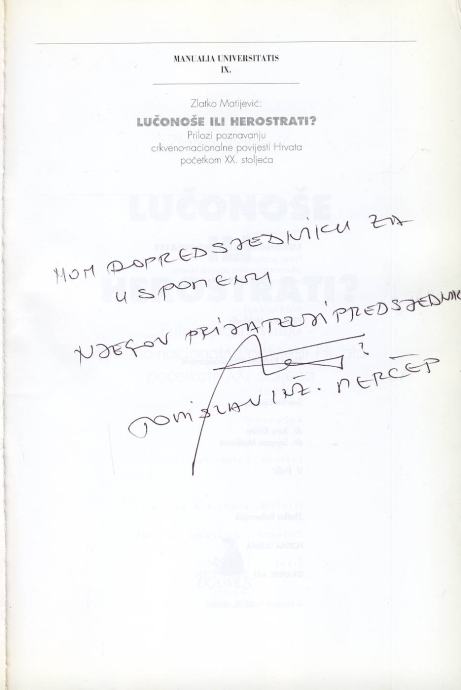 MANUALIA UNIVERSITATIS
IX.
Zlatko Matijević:
LUČONOŠE ILI HEROSTRATI?
Prilozi poznavanju
crkveno-nacionalne povijesti Hrvata
početkom XX. stoljeća
MOM DOPREDSJEDNIKU ZA
USPOMENU
NJEGOV PRIJATELJ I PREDSJEDNIK
TOMISLAV INŽ. MERČEP